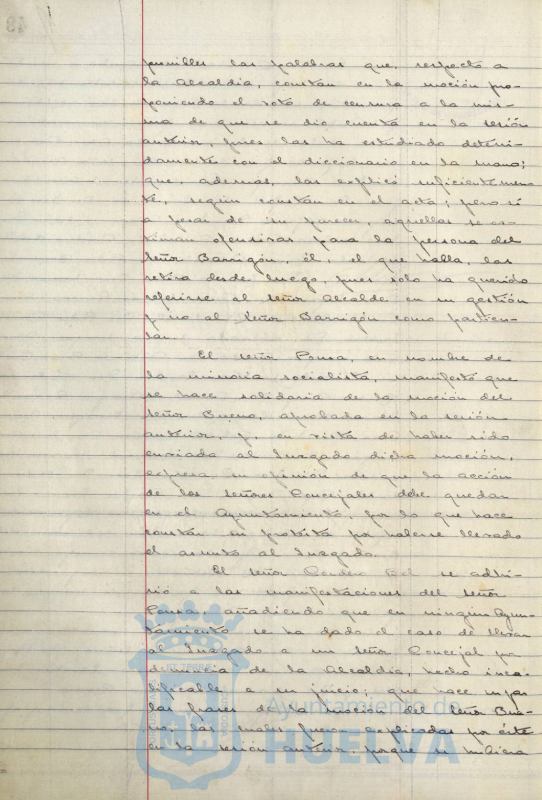 punibles las palabras que, respecto a
la Alcaldía, constan en la moción pro-
poniendo el voto de censura a la mis-
ma de que se dio cuenta en la sesión
anterior, pues las ha estudiado deteni-
damente con el diccionario en la mano;
que, además, las explicó suficientemen-
te, según constan en el acta; pero si
a pesar de su parecer, aquellas se es-
timan ofensivas para la persona del
Señor Barrigón, él, el que habla, las
retira desde luego, pues solo ha querido
referirse al Señor Alcalde en su gestión
y no al Señor Barrigón como particu-
lar.
El Señor Ponsa, en nombre de
la minoría socialista, manifestó que
se hace solidaria de la moción del
Señor Bueno, aprobada en la sesión
anterior, y, en vista de haber sido
enviada al Juzgado dicha moción,
expresa su opinión de que la acción
de los Señores Concejales debe quedar
en el Ayuntamiento, por lo que hace
constar su protesta por haberse llevado
el asunto al Juzgado.
El Señor se adhi-
rió a las manifestaciones del Señor
Ponsa, añadiendo que en ningún Ayun-
tamiento se ha dado el caso de llevar
al Juzgado a un Señor Concejal por
denuncia de la Alcaldía, hecho inca-
lificable a su juicio; que hace suyas
las frases de la moción del Señor Bue-
no, las cuales fueron explicadas por éste
en la sesión anterior, porque si hubiera
Ayuntamiento de
HUELVA